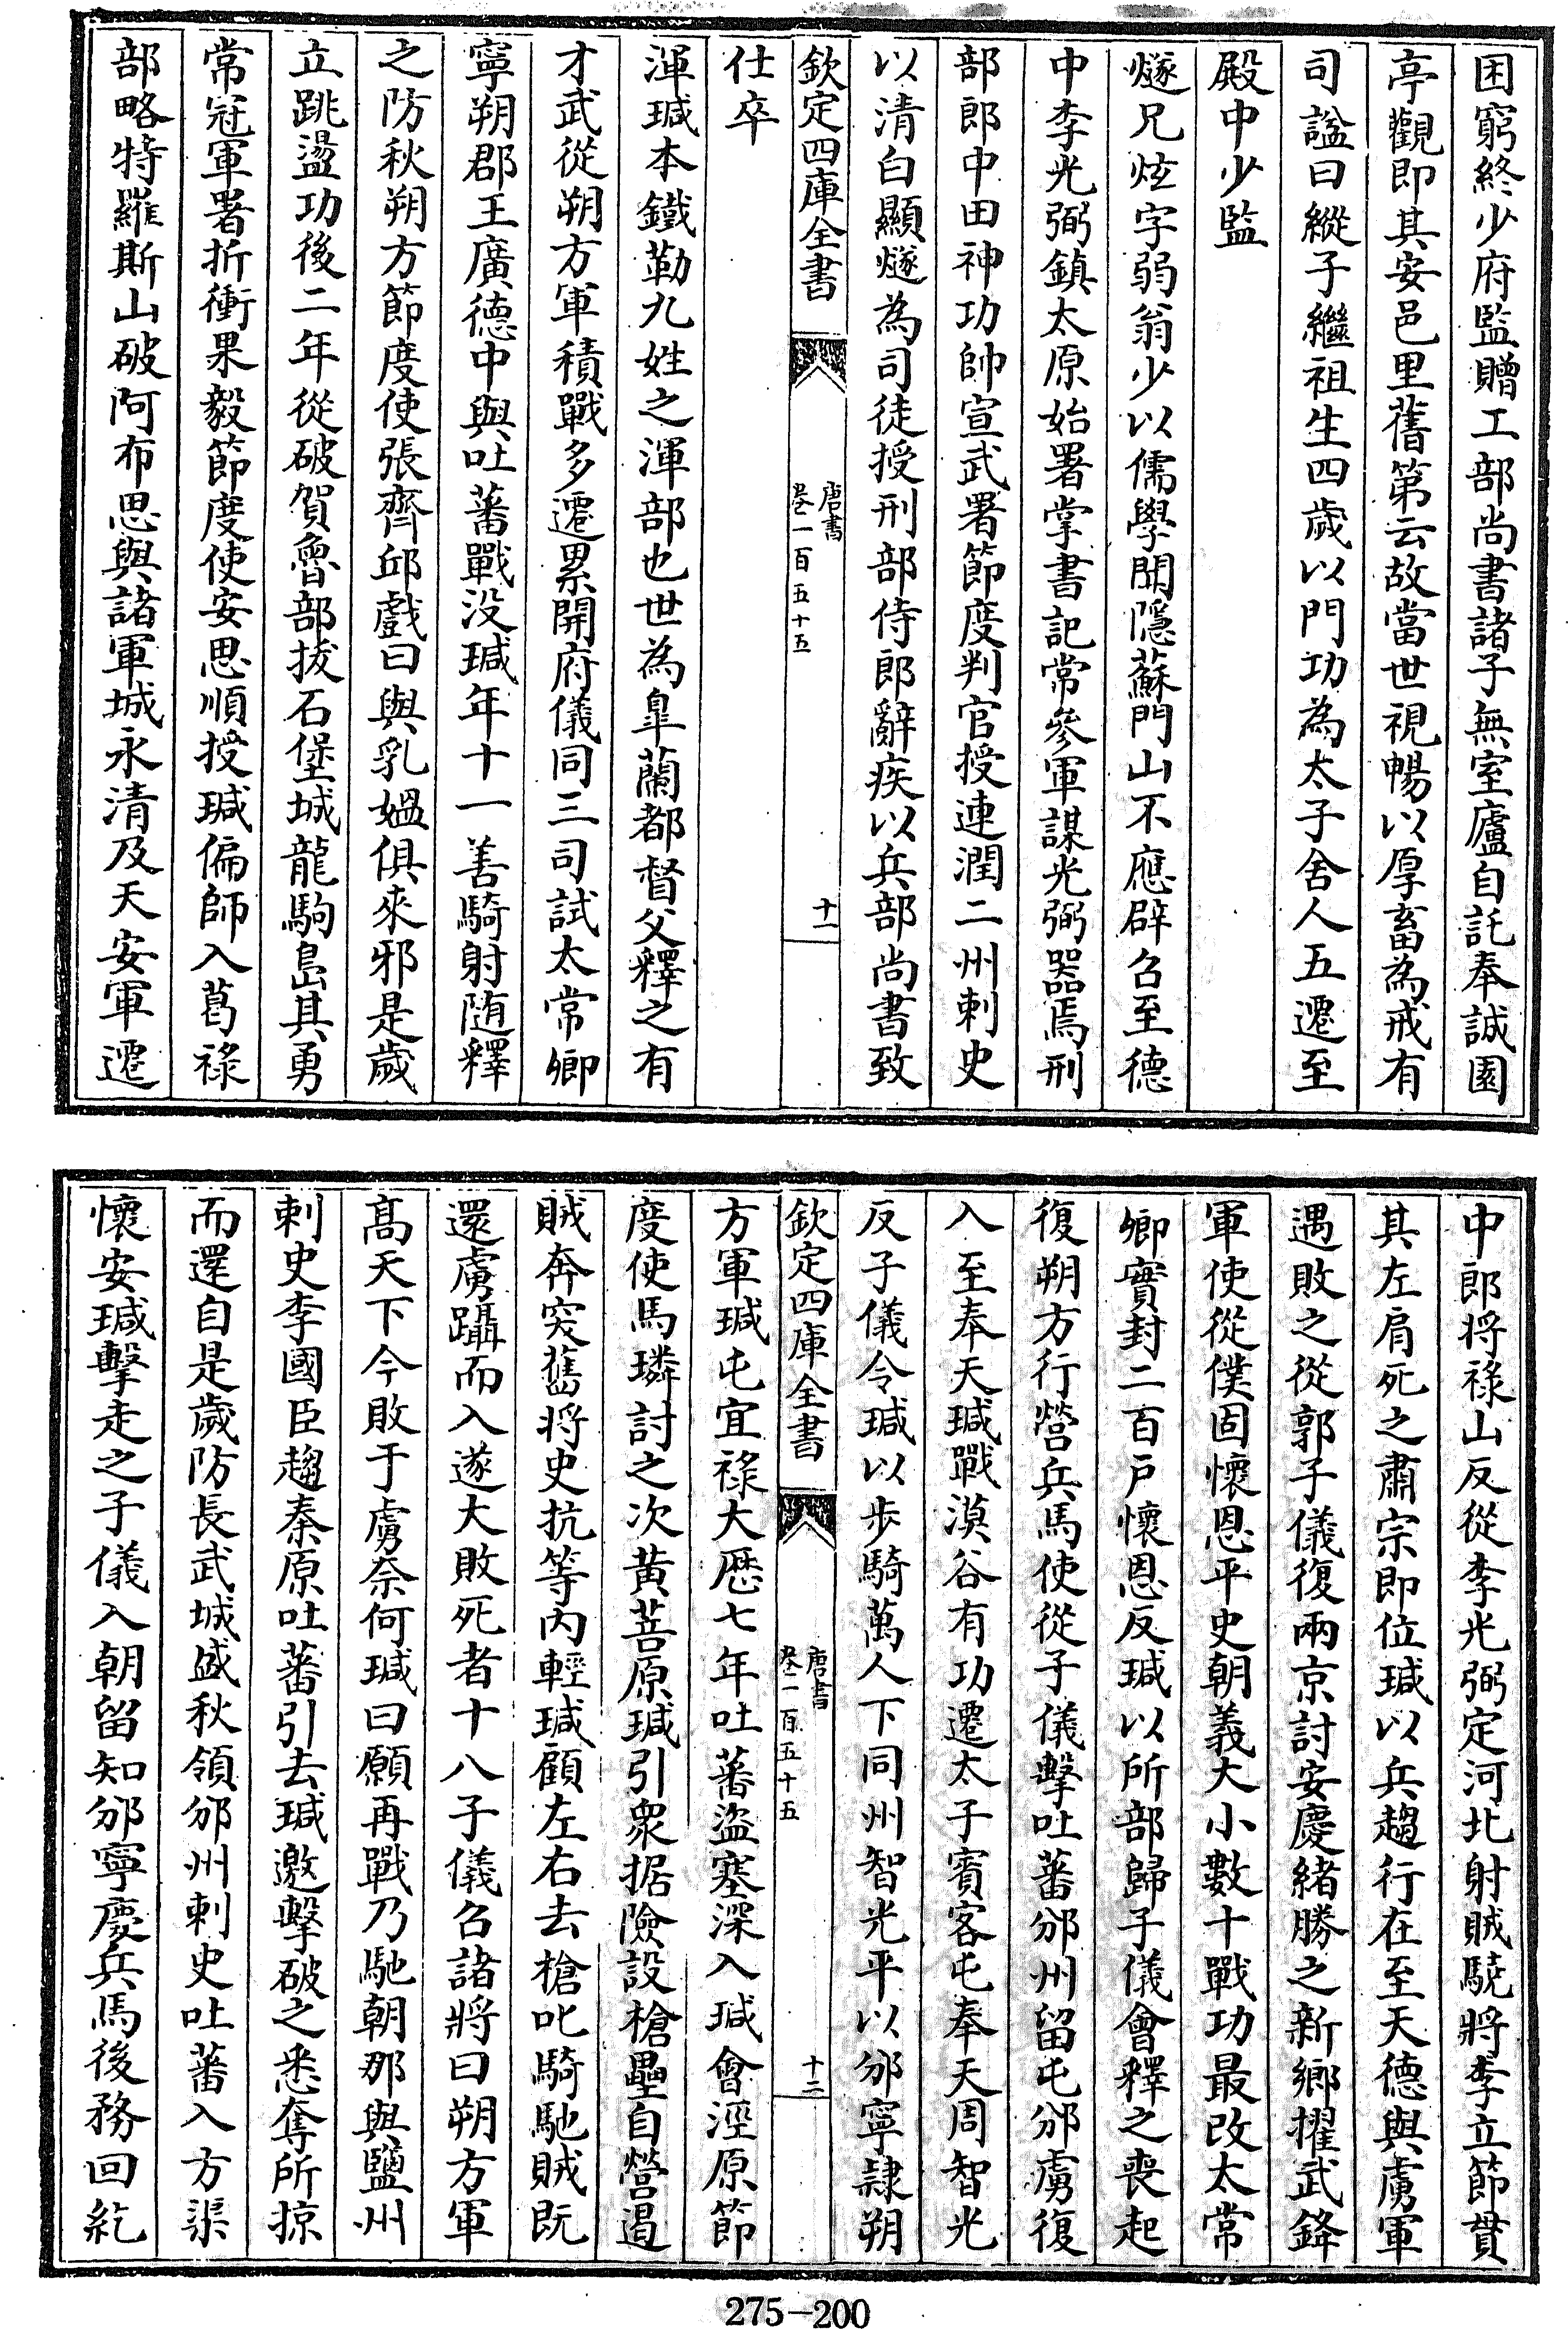 困窮終少府監贈工部尚書諸子無室廬自託奉誠園
亭觀即其安邑里舊第云故當世視暢以厚畜為戒有
司諡曰縱子繼祖生四歲以門功為太子舍人五遷至
殿中少監
燧兄炫字弱翁少以儒學聞隱蘇門山不應辟召至德
中李光弼鎮太原始署掌書記常參軍謀光弼器焉刑
部郎中田神功帥宣武署節度判官授連潤二州刺史
以清白顯燧為司徒授刑部侍郎辭疾以兵部尚書致
欽定四庫全書
唐書
卷一百五十五
十一
仕卒
渾瑊本鐵勒九姓之渾部也世為皐蘭都督父釋之有
才武從朔方軍積戰多遷累開府儀同三司試太常卿
寧朔郡王廣德中與吐蕃戰沒瑊年十一善騎射隨釋
之防秋朔方節度使張齊邱戲曰與乳媼俱來邪是歲
立跳盪功後二年從破賀魯部拔石堡城龍駒島其勇
常冠軍署折衝果毅節度使安思順授瑊偏師入葛祿
部略特羅斯山破阿布思與諸軍城永清及天安軍遷
中郎將祿山反從李光弼定河北射賊驍將李立節貫
其左肩死之肅宗即位瑊以兵趨行在至天德與虜軍
遇敗之從郭子儀復兩京討安慶緒勝之新鄉擢武鋒
軍使從僕固懷恩平史朝義大小數十戰功最改太常
卿實封二百戶懷恩反瑊以所部歸子儀會釋之喪起
復朔方行營兵馬使從子儀擊吐蕃邠州留屯邠虜復
入至奉天瑊戰漠谷有功遷太子賓客屯奉天周智光
反子儀令瑊以步騎萬人下同州智光平以邠寧隸朔
欽定四庫全書
唐書
卷一百五十五
十二
方軍瑊屯宜祿大厯七年吐蕃盜塞深入瑊會涇原節
度使馬璘討之次黃菩原瑊引衆据險設槍壘自營遏
賊奔突舊將史抗等內輕瑊顧左右去槍叱騎馳賊既
還虜躡而入遂大敗死者十八子儀召諸將曰朔方軍
髙天下今敗于虜奈何瑊曰願再戰乃馳朝那與鹽州
刺史李國臣趨秦原吐蕃引去瑊邀擊破之悉奪所掠
而還自是歲防長武城盛秋領邠州刺史吐蕃入方渠
懷安瑊擊走之子儀入朝留知邠寧慶兵馬後務回紇
275-200